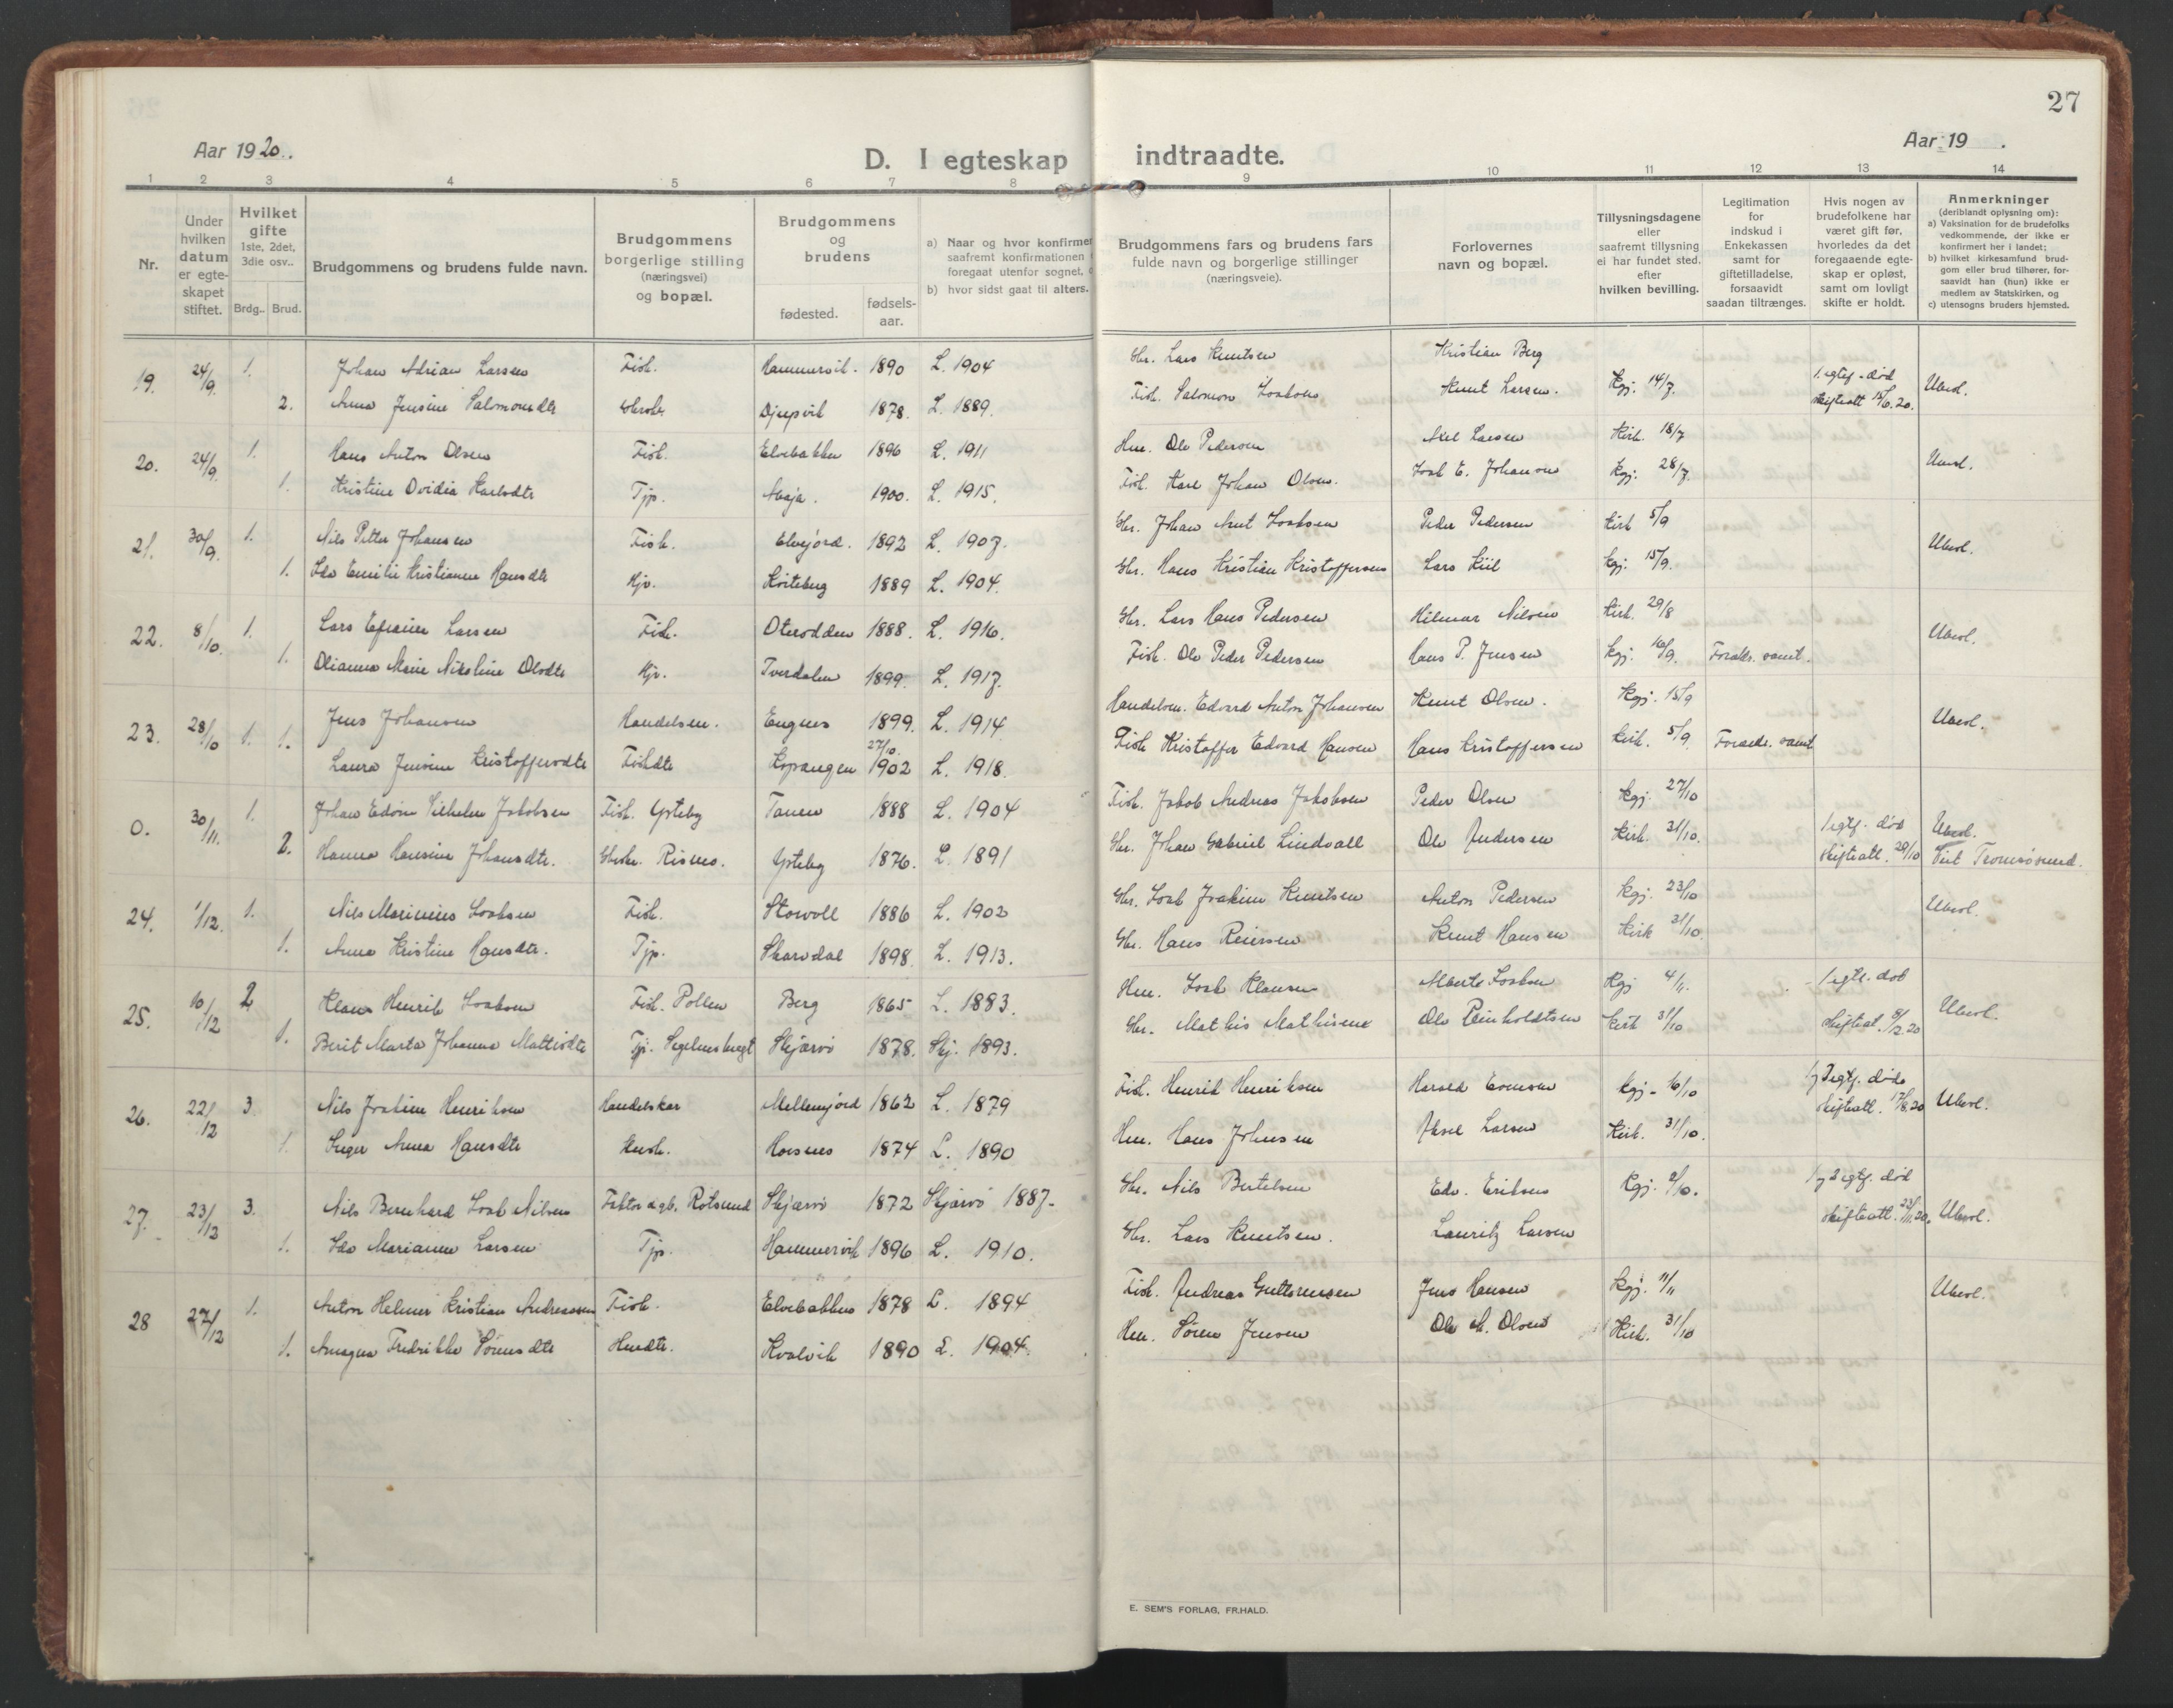 27
Aar 1920.
D. I egteskap indtraadte.
Aar 19 .
1 2 3 4 5 6 7 8 9 10 11 12 13 14
Nr.
Under hvilken datum er egte- skapet stiftet.
Hvilket gifte 1ste, 2det, 3die osv..
Brdg.. Brud.
Brudgommens og brudens fulde navn.
Brudgommens borgerlige stilling (næringsvei) og bopæl.
Brudgommens og brudens
fødested.
fødsels- aar.
a) Naar og hvor konfirmer
saafremt konfirmationen
foregaat utenfor sognet,
b) hvor sidst gaat til alters.
Brudgommens fars og brudens fars
fulde navn og borgerlige stillinger
(næringsveie).
Forlovernes
navn og bopæl.
Tillysningsdagene
eller
saafremt tillysning
ei har fundet sted.
efter
hvilken bevilling.
Legitimation
for
indskud i
Enkekassen
samt for
giftetilladelse,
forsaavidt
saadan tiltrænges.
Hvis nogen av
brudefolkene har
været gift før,
hvorledes da det
foregaaende egte-
skap er opløst,
samt om lovligt
skifte er holdt.
Anmerkninger
(deriblandt oplysning om):
a) Vaksination for de brudefolks
vedkommende, der ikke er
konfirmert her i landet;
b) hvilket kirkesamfund brud-
gom eller brud tilhører, for-
saavidt han (hun) ikke er
medlem av Statskirken, og
c) utensogns bruders hjemsted.
19. 24/9. 1. Johan Adrian Larsen Fisk. Hammervik. 1890 L. 1904 Gbr. Lars Knutsen Kristian Berg
2. Anna Jensine Salomonsdtr Djupvik 1878. L. 1889. Fisk. Salomon Isaksen Knut Larsen. Kgj. 14/7. 1. egtef. død skifteatt 20. Ubesl.
20. 24/9. 1. Hans Anton Olsen Fisk. Elvebakken 1896 L. 1911 Hm. Ole Pedersen Axel Larsen Kirk. 18/7 Ubesl.
1. Kristine Ovidia Karlsdtr Tjp. 1900. L. 1915. Fisk. Karl Johan Olsen. Isak E. Johansen Kgj. 28/7.
21. 30/9. 1. Nils Petter Johansen Fisk. Elvejord. 1892 L. 1907. Gbr. Johan Arnt Isaksen Peder Pedersen Kirk 5/9 Ubesl.
1. Ida Emilie Kristianne Hansdtr Hjv. Koiteberg 1889 L. 1904. Gbr. Hans Kristian Kristoffersen Lars Kiil Kgj. 15/9.
22. 8/10. 1. Lars Efraim Larsen Fisk. Oterodden 1888. L. 1916. Gbr. Lars Hans Pedersen Hilmar Nilsen Kirk. 29/8 Ubesl.
1. Olianna Marie Nikoline Olsdtr Hjv. Tverdalen 1899. L. 1917. Fisk. Ole Peder Pedersen Hans P. Jensen Kgj. 16/9. Foraldr. samt.
23. 28/10 1. Jens Johansen Handelsm. Engnes 1899. L. 1914 Handelsm. Edvard Anton Johansen Knut Olsen. Kgj. 15/9 Ubesl.
1. Laura Jensine Kristoffersdtr Fiskdtr Kopangen 27/10 1902 L. 1918. Fisk Kristoffer Edvard Hansen Hans Kristoffersen Kirk. 5/9. Foraldr. samt
0. 30/11. 1. Johan Edvin Vilhelm Jakobsen Fisk. Ysteby Tanen 1888 L. 1904 Fisk. Jakob Andreas Jakobsen Peder Olsen Kgj. 27/10
2. Hanna Hansine Johansdtr. Risnes. Ysteby 1876. L. 1891 Gbr. Johan Gabriel Lindvall Ole Andersen Kirk. 31/10. 1 egtf. død skifteatt. 29/10 Ubesl. Viet Tromsøsund.
24. 1/12. 1. Nils Marinius Isaksen Fisk. Storvoll 1886 L. 1902 Gbr. Isak Joakim Knutsen Anton Pedersen Kgj. 23/10 Ubesl.
1. Anna Kristine Hansdtr. Tjp. Skarvdal 1898. L. 1913. Gbr. Hans Reiersen Knut Hansen Kirk 31/10.
25. 10/12 2 Klaus Henrik Isaksen Fisk. Pollen Berg 1865 L. 1883. Hm. Isak Klausen Alberts Isaksen Kgj 4/11. 1 egtf. død Ubesl.
1. Berit Marta Johanna Mattisdtr Tj. Segelnesbugt Skjærvø 1878. Skj. 1893. Gbr. Mathis Mathisen Ole Reinholdtsen Kirk 31/10 skifteat. 20
26. 22/12 3. Nils Joakim Henriksen Handelskar Mellemjord 1862 L. 1879 Fisk. Henrik Henriksen Harald Evensen Kgj. 16/10 2 egtf. døde skifteatt. 20 Ubesl.
1. Inger Anna Hansdtr Horsnes 1874 L. 1890 Hm. Hans Johnsen Aksel Larsen Kirk. 31/10.
27. 23/12 3. Nils Bernhard Isak Nilsen Rotsund Skjærvø 1872 Skjærvø 1887. Gbr. Nils Bertelsen Edv. Eriksen Kgj. 2 egtf. død skifteatt. 20. Ubesl.
1. Ida Marianne Larsen Tjp. Hammervik 1896 L. 1910. Gbr. Lars Knutsen. Lauritz Larsen
28 27/12 1. Anton Helmer Kristian Andreassen Fisk. Elvebakken 1878 L. 1894 Fisk. Andreas Guttormsen Jens Hansen Kgj. 11/11 Ubesl.
1. Amagna Fredrikke Sørensdtr Hmdtr. Kvalvik 1890 L. 1904. Hm. Sören Jensen Ole M. Olsen Kirk. 31/10
E. SEM'S FORLAG, FR.HALD.